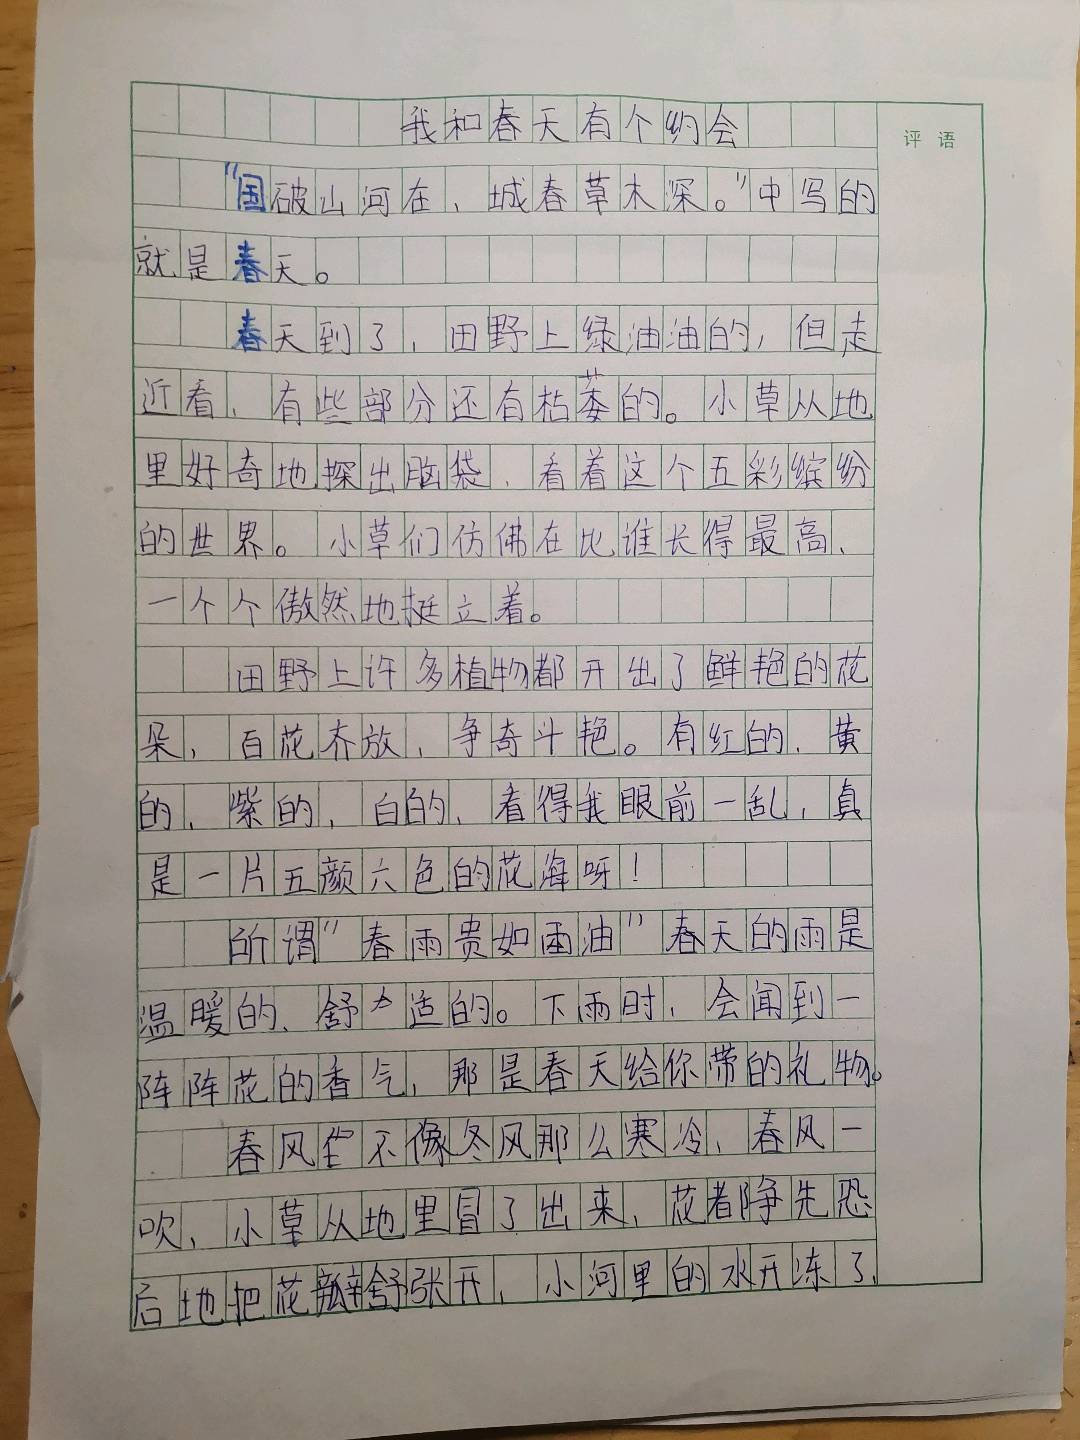 我和春天有个约会
评语
“国破山河在，城春草木深。”中写的
就是春天。
春天到了，田野上绿油油的，但走
近看，有些部分还有枯萎的。小草从地
里好奇地探出脑袋，看着这个五彩缤纷
的世界。小草们仿佛在比谁长得最高，
一个个傲然地挺立着。
田野上许多植物都开出了鲜艳的花
朵，百花齐放，争奇斗艳。有红的，黄
的，紫的，白的，看得我眼前一乱，真
是一片五颜六色的花海呀！
所谓“春雨贵如油”春天的雨是
温暖的，舒造的。下雨时，会闻到一
阵阵花的香气，那是春天给你带的礼物。
春风不像冬风那么寒冷，春风一
吹，小草从地里冒了出来，花都争先恐
后地把花瓣舒张开，小河里的水开冻了，